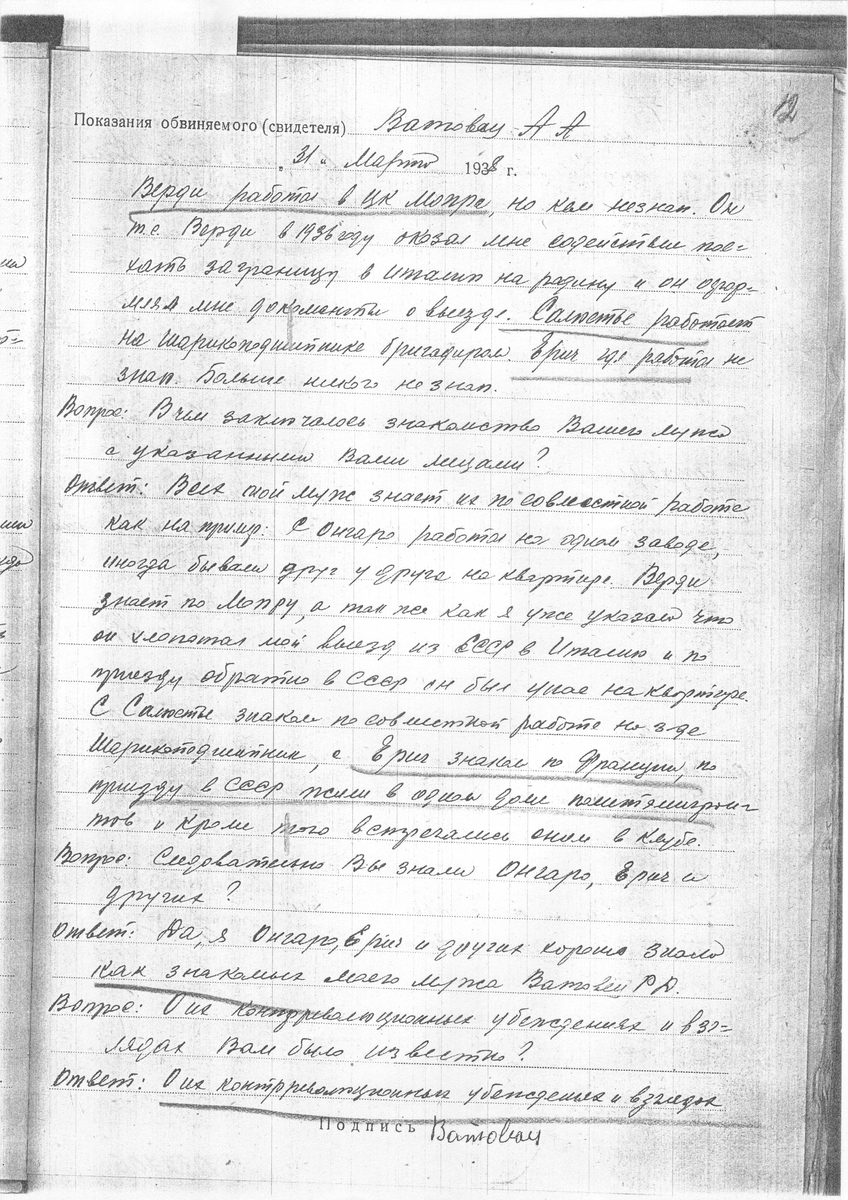 12
Показания обвиняемого (свидетеля) Ватовац А А
„31“ Марта 1938 г.
Верди работал в ЦК Мопра, но кем незнаю. Он
т.е. Верди в 1936 году оказал мне содействие пое-
хать заграницу в Италию на родину и он офор-
млял мне документы о выезде. Салюстье работает
на шарикоподшипнике бригадиром. Ерич где работал не
знаю. Больше никого незнаю.
Вопрос: В чем заключалось знакомство Вашего мужа
с указанными Вами лицами?
Ответ: Всех мой муж знает их по совместной работе
как например: С Онгаро работал на одном заводе,
иногда бывали друг у друга на квартире. Верди
знает по Мопру, а так же как я уже указала что
он хлопотал мой выезд из СССР в Италию и по
приезду обратно в СССР он был у нас на квартире.
С Салюстье знаком по совместной работе на з-де
Шарикоподшипник, с Ерич знаком по Франции, по
приезду в СССР жили в одном доме политэмигран-
тов и кроме того встречались они в Клубе.
Вопрос: Следовательно Вы знали Онгаро, Ерич и
других?
Ответ: Да, я Онгаро, Ерич и других хорошо знала
как знакомых моего мужа Ватовац Р А.
Вопрос: О их контрреволюционных убеждениях и взг-
лядах Вам было известно?
Ответ: О их контрреволюционных убеждениях и взглядах
Подпись Ватовац